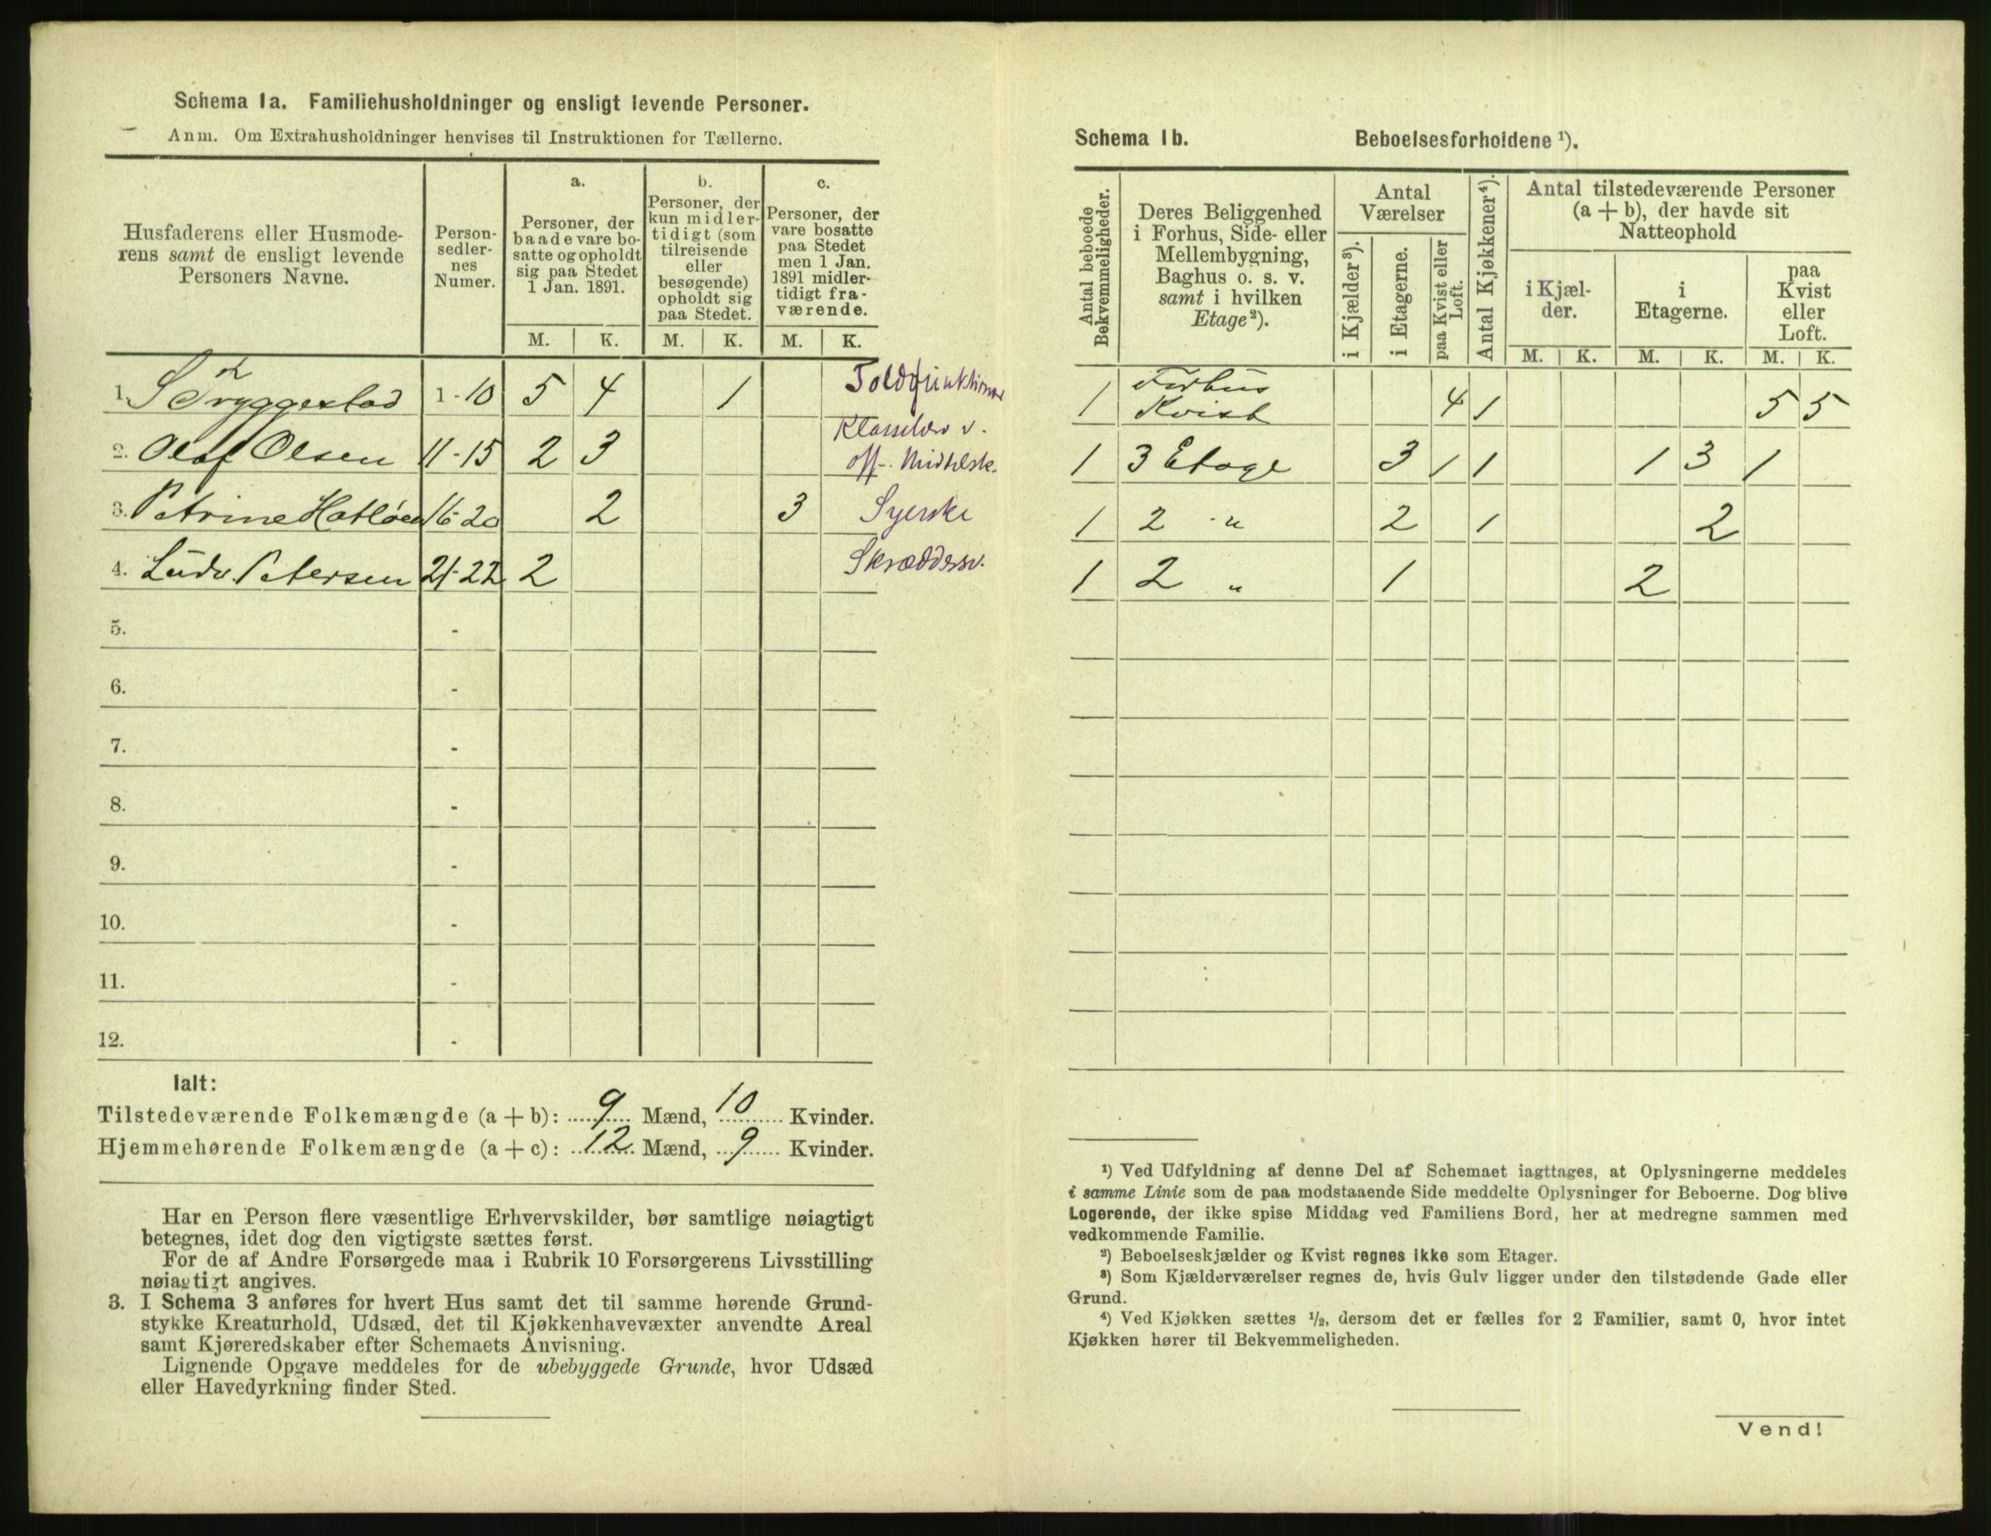 Schema 1a. Familiehusholdninger og ensligt levende Personer.
Anm. Om Extrahusholdninger henvises til Instruktionen for Tællerne.
Husfaderens eller Husmode-
rens samt de ensligt levende
Personers Navne.
Person-
sedler-
nes
Numer.
a.
Personer, der
baade vare bo-
satte og opholdt
sig paa Stedet
1 Jan. 1891.
b.
Personer, der
kun midler-
tidigt (som
tilreisende
eller
besøgende)
opholdt sig
paa Stedet.
c.
Personer, der
vare bosatte
paa Stedet
men 1 Jan.
1891 midler-
tidigt fra-
værende.
M. K. M. K. M. K.
1. S Tryggestad 1-10 5 4 1 Toldfunktionær
2. Olaf Olsen 11-15 2 3 Klasselær v.
off. Middelsk.
3. Petrine Hatløen 16-20 2 3 Syerske
4. Ludv Petersen 21-22 2 Skræddersv.
5. -
6. -
7. -
8. -
9. -
10. -
11. -
12. -
Ialt:
Tilstedeværende Folkemængde (a + b): 9 Mænd, 10 Kvinder.
Hjemmehørende Folkemængde (a + c): 12 Mænd, 9 Kvinder.
Har en Person flere væsentlige Erhvervskilder, bør samtlige nøiagtigt
betegnes, idet dog den vigtigste sættes først.
For de af Andre Forsørgede maa i Rubrik 10 Forsørgerens Livsstilling
nøiagtigt angives.
3. I Schema 3 anføres for hvert Hus samt det til samme hørende Grund-
stykke Kreaturhold, Udsæd, det til Kjøkkenhavevæxter anvendte Areal
samt Kjøreredskaber efter Schemaets Anvisning.
Lignende Opgave meddeles for de ubebyggede Grunde, hvor Udsæd
eller Havedyrkning finder Sted.
Schema 1b. Beboelsesforholdene ¹).
Antal beboede
Bekvemmeligheder.
Deres Beliggenhed
i Forhus, Side- eller
Mellembygning,
Baghus o. s. v.
samt i hvilken
Etage²).
Antal
Værelser
i Kjælder³).
i Etagerne.
paa Kvist eller
Loft.
Antal Kjøkkener⁴).
Antal tilstedeværende Personer
(a + b), der havde sit
Natteophold
i Kjæl-
der.
i
Etagerne.
paa
Kvist
eller
Loft.
M. K. M. K. M. K.
1 Forhus
Kvist 4 1 5 5
1 3 Etage 3 1 1 1 3 1
1 2 " 2 1 2
1 2 " 1 2
¹) Ved Udfyldning af denne Del af Schemaet iagttages, at Oplysningerne meddeles
i samme Linie som de paa modstaaende Side meddelte Oplysninger for Beboerne. Dog blive
Logerende, der ikke spise Middag ved Familiens Bord, her at medregne sammen med
vedkommende Familie.
²) Beboelseskjælder og Kvist regnes ikke som Etager.
³) Som Kjælderværelser regnes de, hvis Gulv ligger under den tilstødende Gade eller
Grund.
⁴) Ved Kjøkken sættes ¹/₂, dersom det er fælles for 2 Familier, samt 0, hvor intet
Kjøkken hører til Bekvemmeligheden.
Vend!